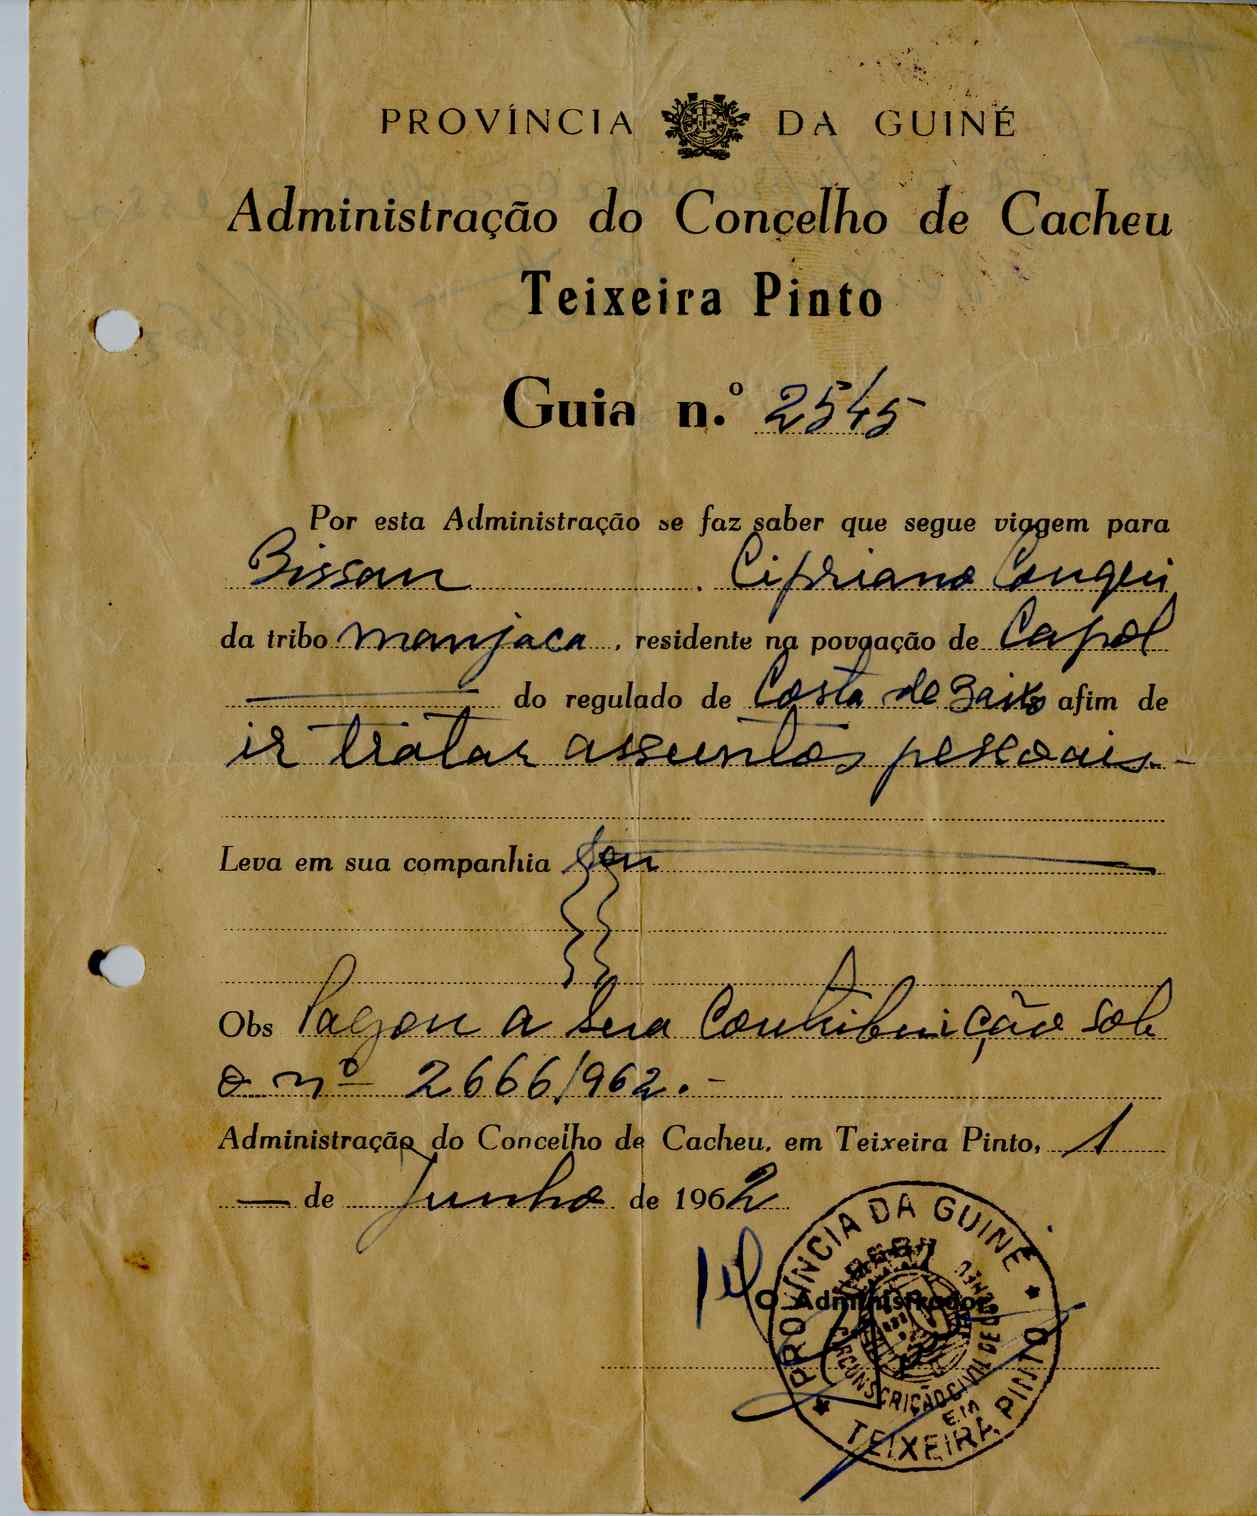 PROVÍNCIA DA GUINÉ
Administração do Concelho de Cacheu
Teixeira Pinto
Guia n.º 2545
Por esta Administração se faz saber que segue viagem para
Bissau . Cipriano
da tribo manjaca , residente na povoação de Capol
do regulado de Costa de Baixo afim de
ir tratar assuntos pessoais.-
Leva em sua companhia
Obs Pagou a sua Contribuição sob
o nº 2666/962.-
Administração do Concelho de Cacheu, em Teixeira Pinto, 1
— de Junho de 1962
O Administrador,
PROVÍNCIA DA GUINÉ
CIRCUNSCRIÇÃO CIVIL DE CACHEU
EM
TEIXEIRA PINTO